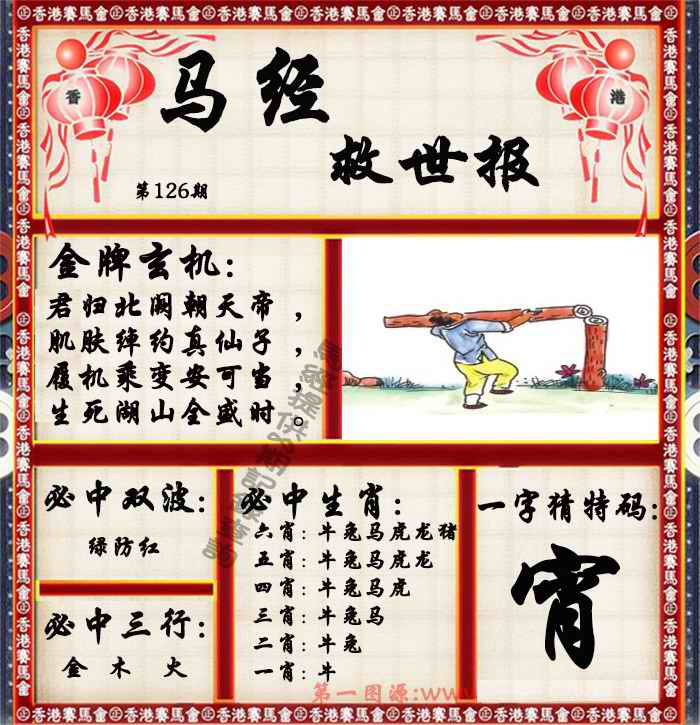 香港賽馬會
香
港
马经
救世报
第126期
金牌玄机:
君归北阙朝天帝，
肌肤绰约真仙子，
履机乘变安可当，
生死湖山全盛时。
必中双波:
绿防红
必中三行:
金 木 火
必中生肖:
六肖: 牛兔马虎龙猪
五肖: 牛兔马虎龙
四肖: 牛兔马虎
三肖: 牛兔马
二肖: 牛兔
一肖: 牛
一字猜特码:
宵
第一图源:www